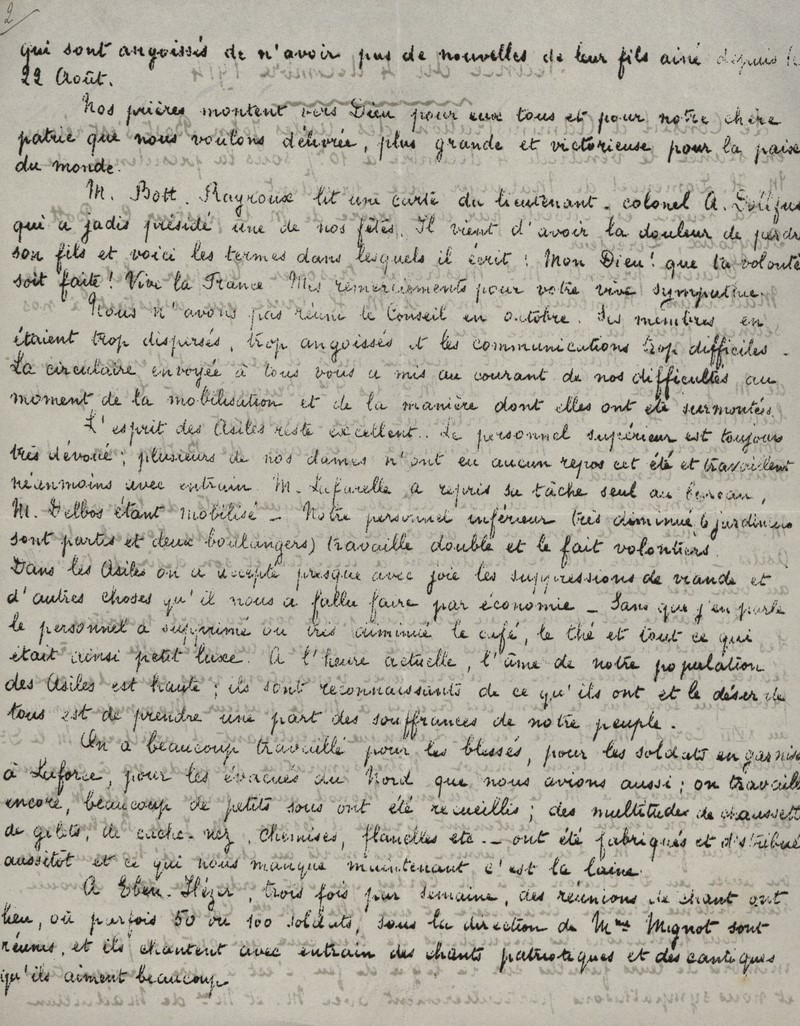 2
qui sont angoissés de n'avoir pas de nouvelles de leur fils ainé depuis le
22 Août.
Nos prières montent vers Dieu pour eux tous et pour notre chère
patrie que nous voulons délivrée, plus grande et victorieuse pour la paix
du monde.
M. Bott. Rayroux lit une carte du lieutenant-colonel A. Dollfus
qui a jadis présidé une de nos fêtes. Il vient d'avoir la douleur de perdre
son fils et voici les termes dans lesquels il écrit : Mon Dieu! que ta volonté
soit faite! Vive la France Mes remerciements pour votre vive sympathie.
Nous n'avons pas réuni le Conseil en octobre. Ses membres en
étaient trop dispersés, trop angoissés et les communications trop difficiles.
La circulaire envoyée à tous vous a mis au courant de nos difficultés au
moment de la mobilisation et de la manière dont elles ont été surmontés.
L'esprit des Asiles reste excellent.. Le personnel supérieur est toujours
très dévoué; plusieurs de nos dames n'ont eu aucun repos cet été et travaillent
néanmoins avec entrain. M. Lafarelle a repris sa tâche seul au bureau,
M. Delbos étant mobilisé - Notre personnel inférieur très diminué (6 jardiniers
sont partis et deux boulangers) travaille double et le fait volontiers.
Dans les Asiles on a accepté presque avec joie les suppressions de viande et
d'autres choses qu'il nous a fallu faire par économie - Sans que j'en parle
le personnel a supprimé ou très diminué le café, le thé et tout ce qui
était ainsi petit luxe. A l'heure actuelle, l'âme de notre population
des Asiles est haute; ils sont reconnaissants de ce qu'ils ont et le désir de
tous est de prendre une part des souffrances de notre peuple.
On a beaucoup travaillé pour les blessés, pour les soldats en garnison
à Laforce, pour les évacués du Nord que nous avions aussi; on travaille
encore, beaucoup de petits sous ont été recueillis; des multitudes de chaussettes
de gilets, de cache-nez, chemises, flanelles etc.- ont été fabriqués et distribués
aussitôt et ce qui nous manque maintenant c'est la laine.
A Eben-Hézer, trois fois par semaine, des réunions de chant ont
lieu, où parfois 50 ou 100 soldats, sous la direction de Mme Mignot sont
réunis, et ils chantent avec entrain des chants patriotiques et des cantiques
qu'ils aiment beaucoup.